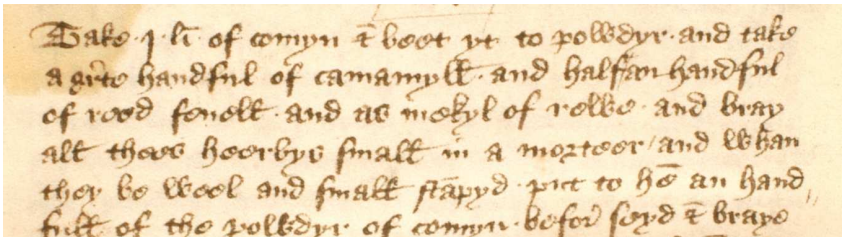 Take · j · li · of comyn & beet yt to powdyr · and take
a grete handful of camamyll · and half an handful
of reed fenell · and as mekyl of rewe · and bray
all thees heerbys small in a morteer / and whan
they be weel and small stāpyd · put to hē an hand„
full of the powdyr of comyn · befor seyd & braye